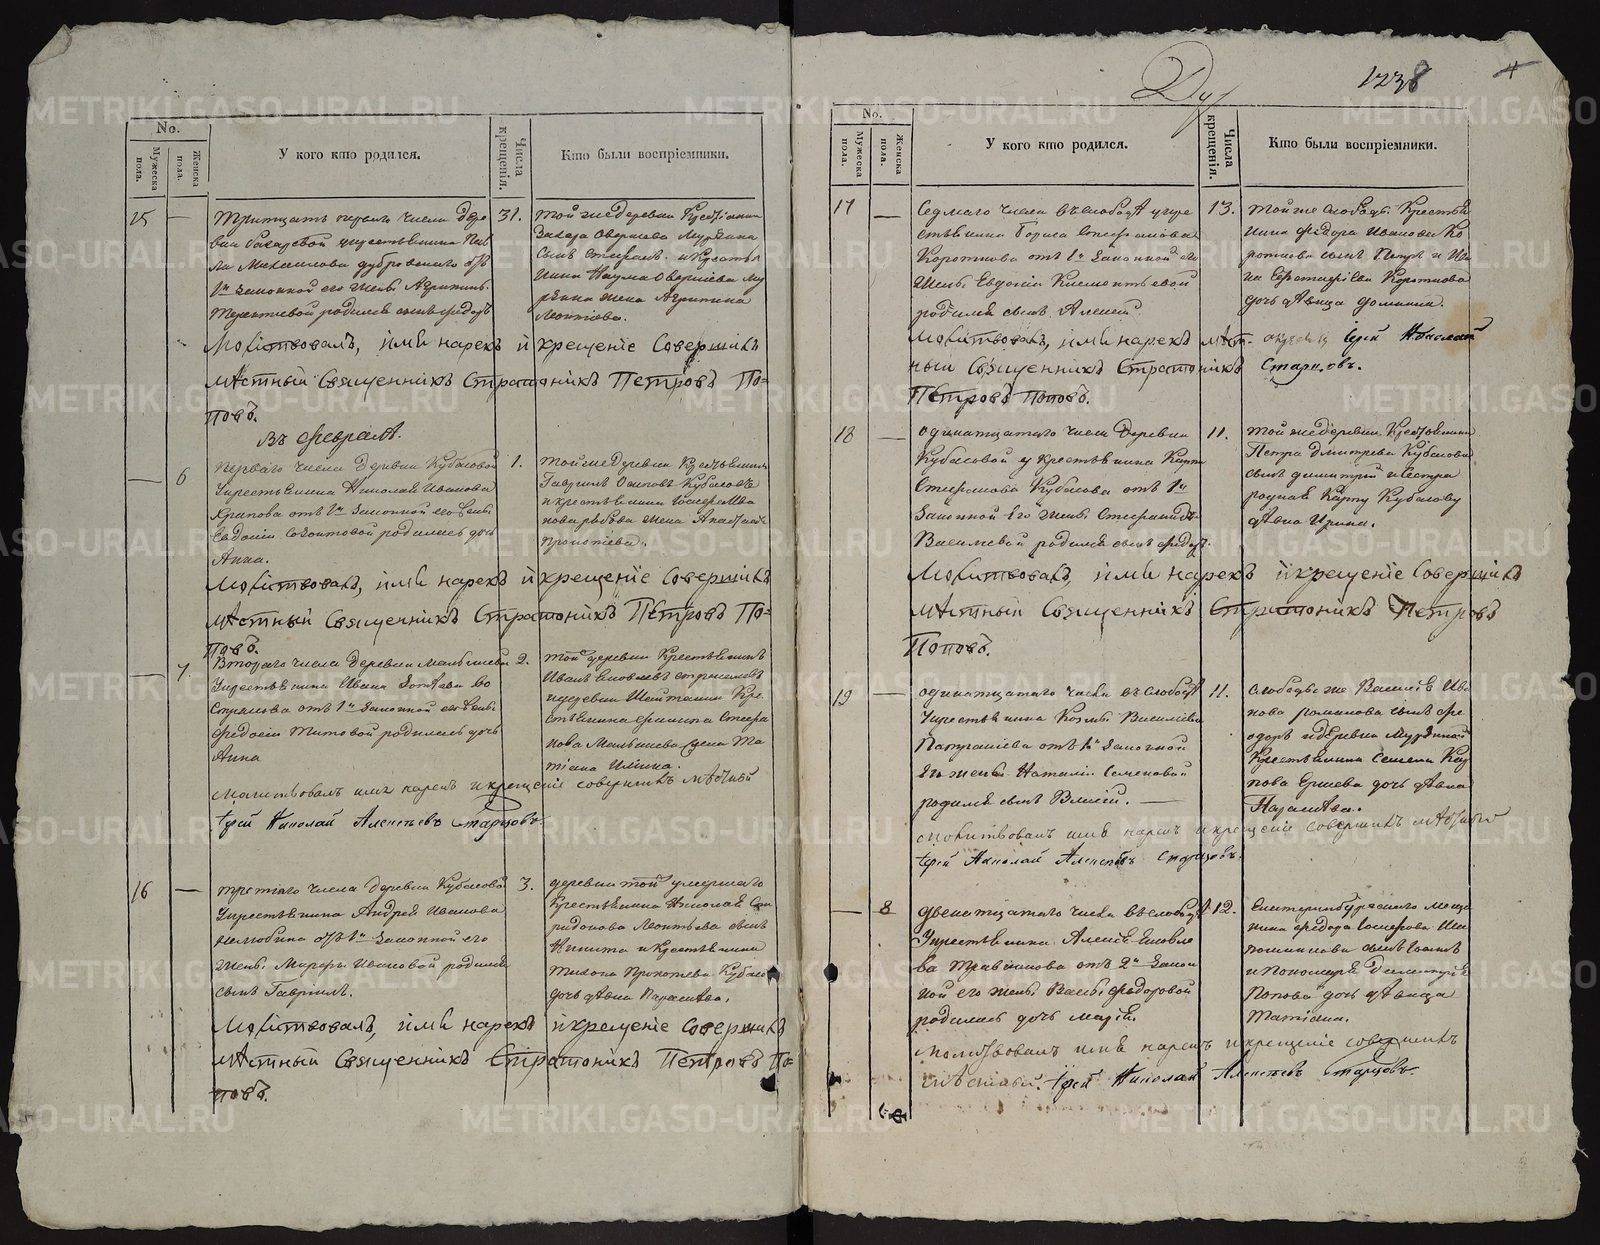 Ду
1238
No.
Мужеска пола.
Женска пола.
У кого кто родился.
Числа крещенія.
Кто были воспріемники.
15
тритцать перваго числа дере
вни бахаревой у крестьянина Пав
ла Михаилова дубровскаго отъ
1й законной его жены Агрипины
Терентьевой родился сынъ федоръ
31.
той же деревни Крестьянина
Захара Оверисва Мурзина
сынъ Стефанъ и Кресть
янина Наума Оверисва Му
рзина жена Агрипина
Леонтіева.
Молитвовалъ, имя нарекъ и крещеніе Совершилъ
мѣстный Священникъ Стратоникъ Петровъ По=
повъ.
въ февралѣ.
6
перваго числа деревни Кубасовой
у крестьянина Николая Иванова
Храпова отъ 1й законной его жены
Евдокіи родилась дочь
Анна.
1.
той же деревни Крестьянинъ
Гавріилъ Осиповъ Кубасовъ
и крестьянина
жена Анастасія
Прокопіева.
Молитвовалъ, имя нарекъ и крещеніе Совершилъ
мѣстный Священникъ Стратоникъ Петровъ По=
повъ.
7.
Втораго числа деревни Малышева
у крестьянина Ивана Зотѣева Во
стрякова отъ 1й законной его жены
федосіи Титовой родилась дочь
Анна
2.
той деревни Крестьянинъ
Иванъ Яковлевъ
и деревни Кре
стьянина филипа Стефа
нова Малышева жена Та
тіана Ильина.
молитвовалъ имя нарекъ и крещеніе совершилъ мѣстный
Іерей Николай Алексѣевъ Старцовъ
16
третьяго числа деревни Кубасовой
у крестьянина Андрея Иванова
отъ 1й законной его
жены Марфы Ивановой родился
сынъ Гавріилъ.
3.
деревни той умершаго
Крестьянина Николая Спи
ридонова Леонтьева сынъ
Никита и Крестьянина
Тихона Прокопьева Кубасо
дочь дѣвка Параскева.
Молитвовалъ, имя нарекъ и крещеніе Совершилъ
мѣстный Священникъ Стратоникъ Петровъ По=
повъ.
No.
Мужеска пола.
Женска пола.
У кого кто родился.
Числа крещенія.
Кто были воспріемники.
17
Седмаго числа въ слободѣ у кре
стьянина Бориса Стефанова
Короткова отъ 1й законной его
жены Евдокіи Климентьевой
родился сынъ Алексей.
13.
той же слободы Крестья
нина федора Иванова Ко
роткова сынъ Петръ и
Короткова
дочь дѣвица домника.
Молитвовалъ, имя нарекъ мѣст-
ный Священникъ Стратоникъ
Петровъ Поповъ.
Іерей Николай
Старцовъ.
18
одинатцатаго числа деревни
Кубасовой у крестьянина Карпа
Стефанова Кубасова отъ 1й
законной Его жены Стефаниды
Василіевой родился сынъ федоръ.
11.
той же деревни Крестьянина
Петра Дмитріева Кубасова
сынъ димитрій и сестра
родная Карпу Кубасову
дѣвка Ирина.
Молитвовалъ, имя нарекъ и крещеніе Совершилъ
мѣстный Священникъ Стратоникъ Петровъ
Поповъ.
19
одинатцатаго числа въ слободѣ
у крестьянина Козмы Василіева
Патрашева отъ 1й законной
Его жены Наталіи Семеновой
родился сынъ Власій.
11.
слободы же Василія Ива
нова Романова сынъ фе
одоръ и деревни Мурзиной
Крестьянина Семена Кар
пова Ершева дочь дѣвка
Параскева.
молитвовалъ имя нарекъ и крещеніе совершилъ мѣстный
Іерей Николай Алексѣевъ Старцовъ.
8
двенатцатаго числа въ слободѣ
у крестьянина Алексѣя Яковле
ва Травникова отъ 2й закон
ной его жены Вассы федоровой
родилась дочь Марія.
12.
Екатеринбургскаго меща
нина федора Іосифова
сынъ Іоаннъ
и Пономаря Димитрія
Попова дочь дѣвица
Татіана.
молитвовалъ имя нарекъ и крещеніе совершилъ
мѣстный Іерей Николай Алексѣевъ Старцовъ
METRIKI.GASO-URAL.RU